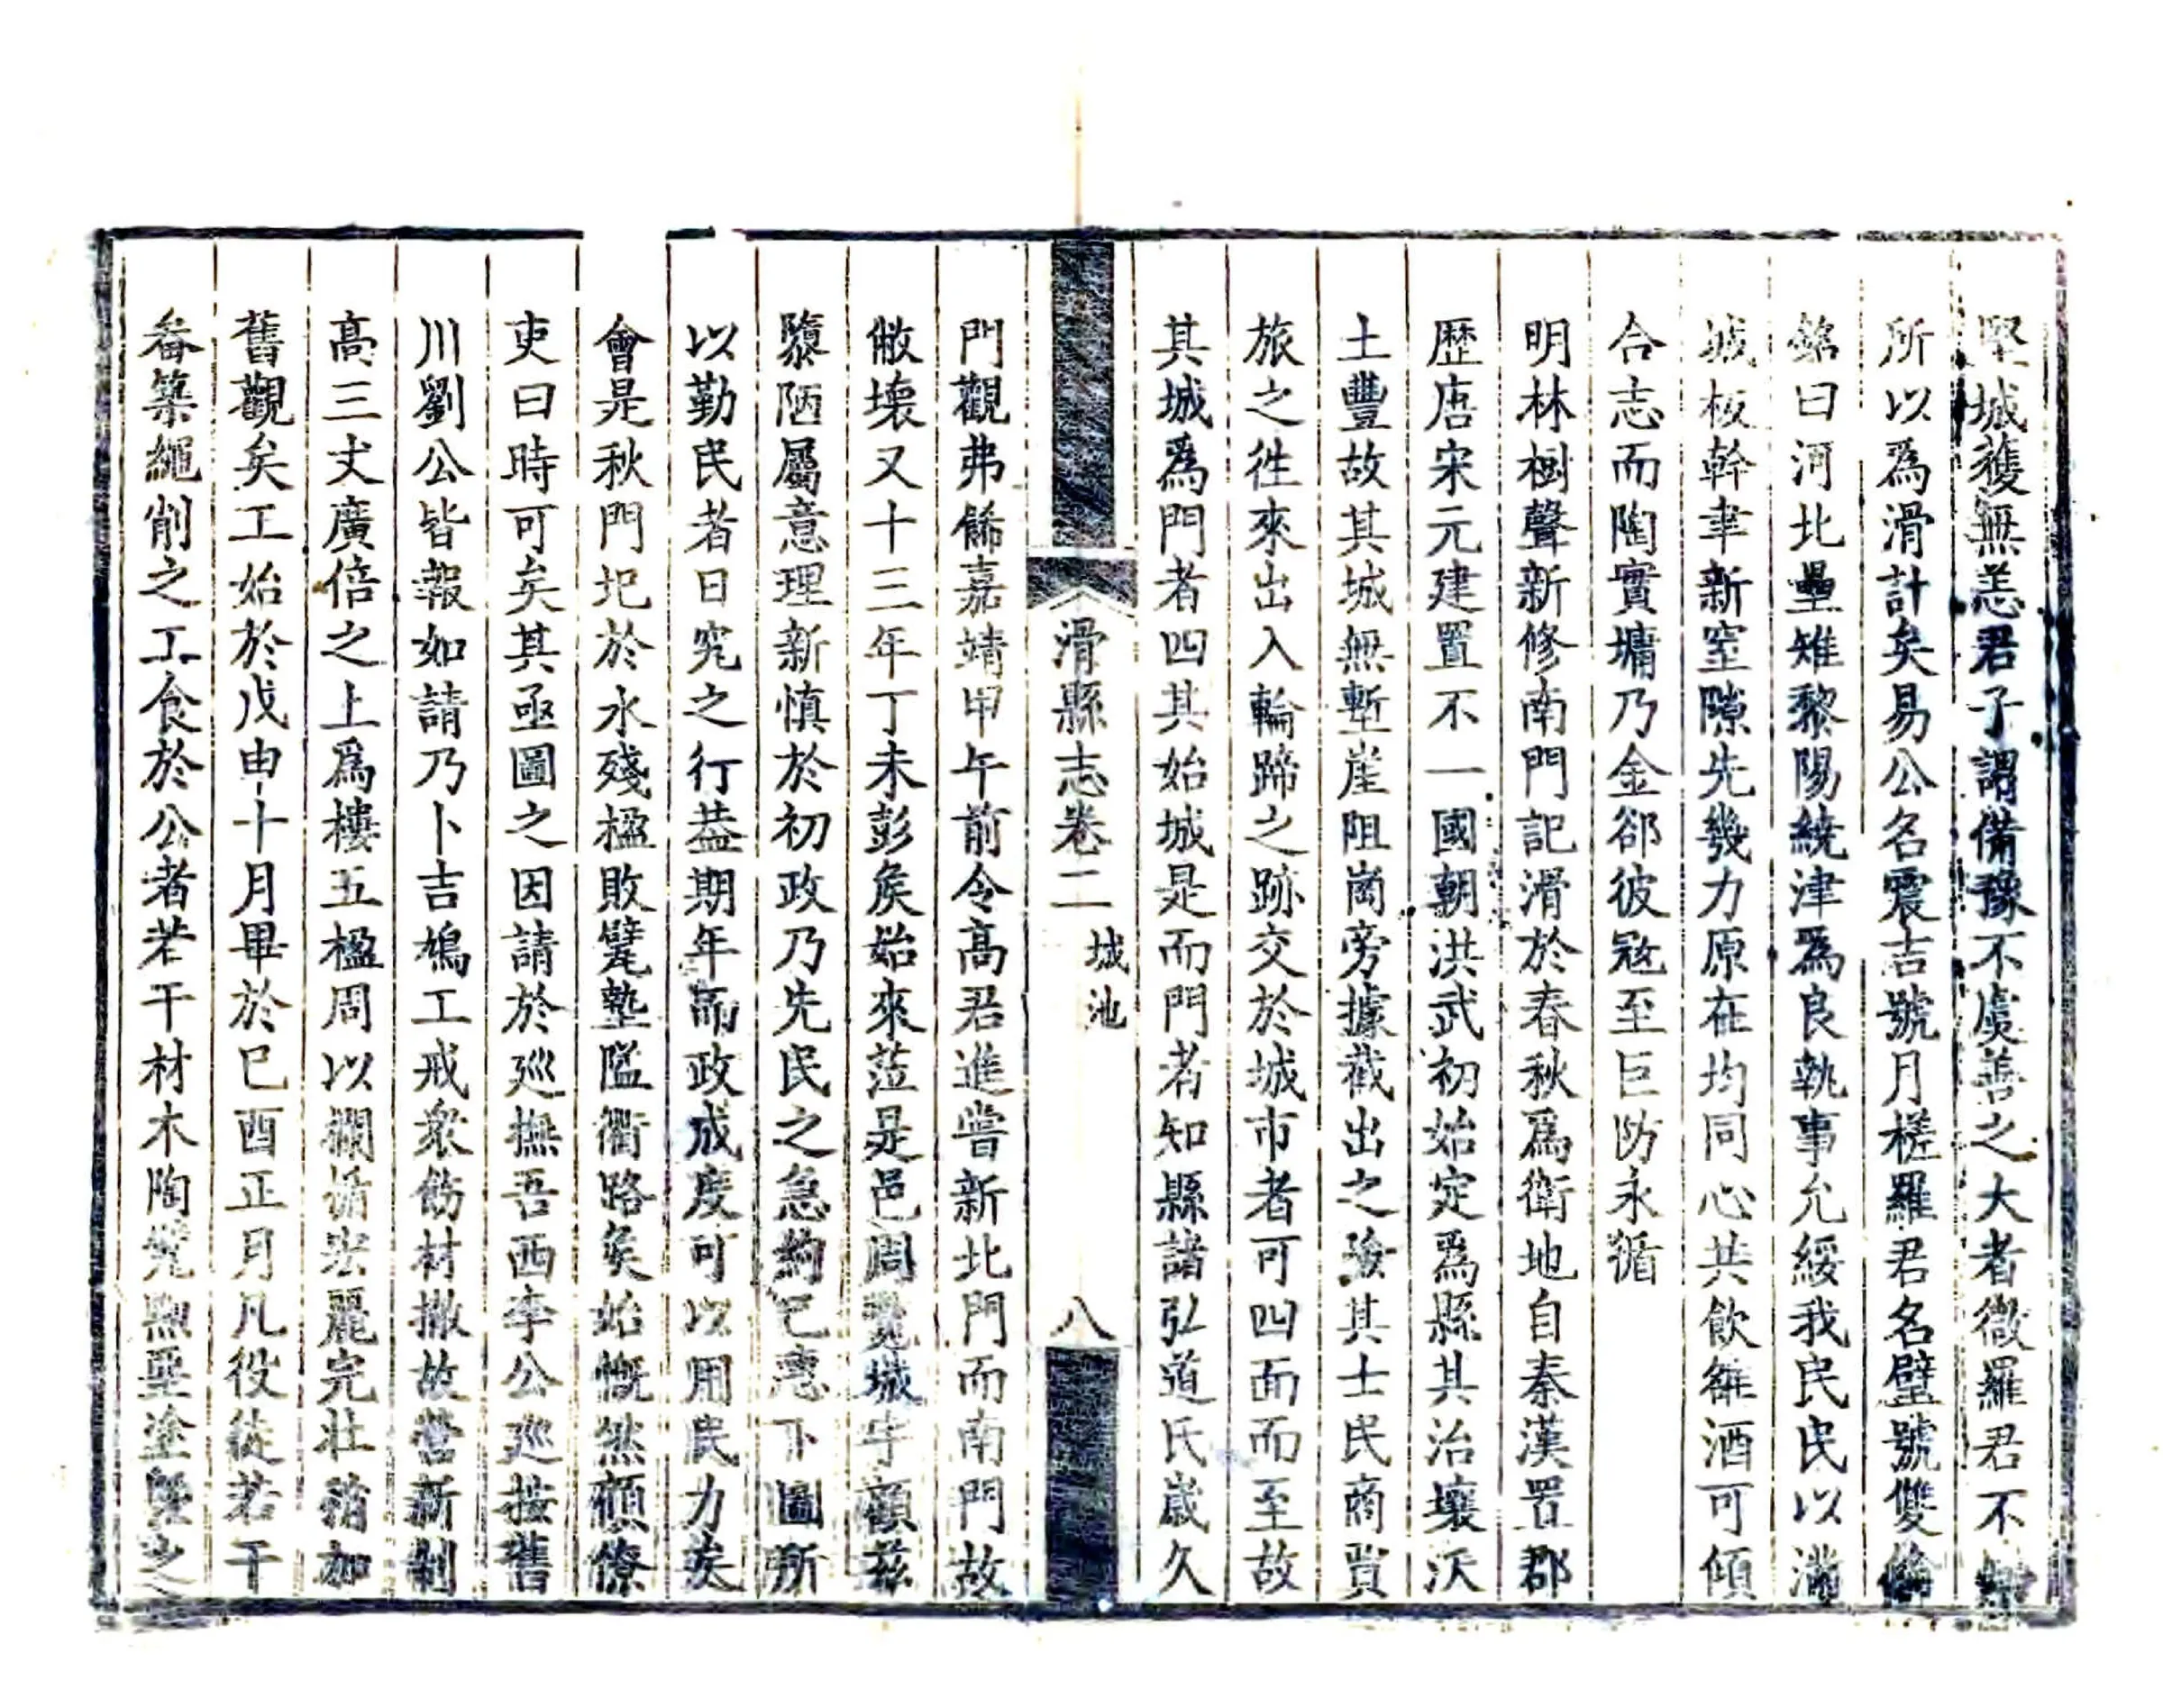 堅城獲無恙君子謂備豫不虞善之大者微羅君不
所以爲滑計矣易公名震吉號月槎羅君名璧號雙
銘曰河北壘雉黎陽統津爲良執事允綏我民民以
城板幹聿新窒隙先幾力原在均同心共飲雒酒可傾
合志而陶實墉乃金郤彼冦至巨防永循
明林樹聲新修南門記滑於春秋爲衛地自秦漢置郡
歷唐宋元建置不一國朝洪武初始定爲縣其治壤沃
土豐故其城無塹崖阻崗旁據截出之險其士民商賈
旅之徃來出入輪蹄之跡交於城市者可四面而至故
其城爲門者四其始城是而門者知縣諸弘道氏歲久
滑縣志卷二 城池 八
門觀弗餙嘉靖甲午前令高君進嘗新北門而南門故
敝壞又十三年丁未彭矦始來蒞是邑周覽城守顧茲
隳陋屬意理新慎於初政乃先民之急約巳惠下圖所
以勤民者日究之行葢期年而政成度可以用民力矣
會是秋門圮於水殘楹敗甓墊隘衢路矣始慨然顧僚
吏曰時可矣其亟圖之因請於廵撫吾西李公廵按舊
川劉公皆報如請乃卜吉鳩工戒衆飭材撤故營新制
高三丈廣倍之上爲樓五楹周以欄楯宏麗完壯稍加
舊觀矣工始於戊申十月畢於巳酉正月凡役徒若干
畚築繩削之工食於公者若干材木陶甓黝堊塗墍之